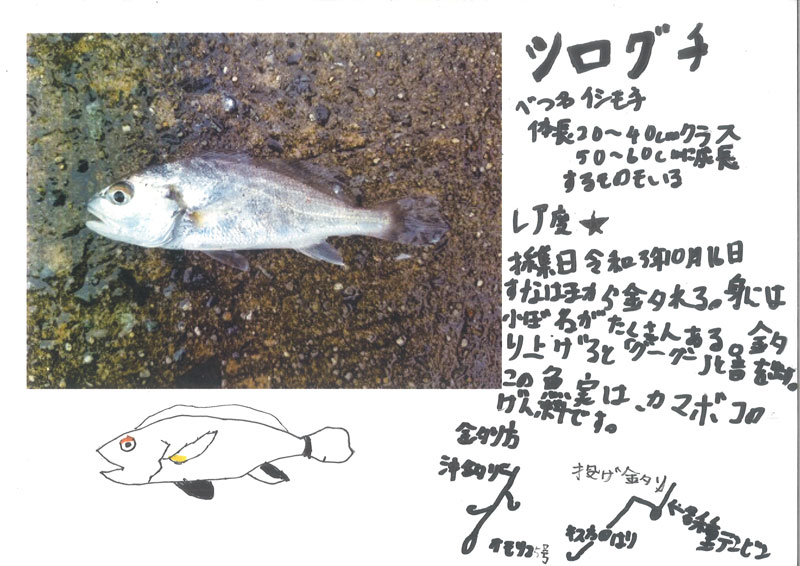 シログチ
べつ名 イシモチ
体長20〜40cmクラス
50〜60cmに成長
するものもいる
レア度★
採集日 令和3年10月16日
すなはまから釣れる。身には
小ぼねがたくさんある。釣
り上げると「グーグー」と音を出す。
この魚実は、カマボコの
げん料です。
釣り方
沖釣り
オモリ25号
投げ釣り
キス用のはり
各種テンビン